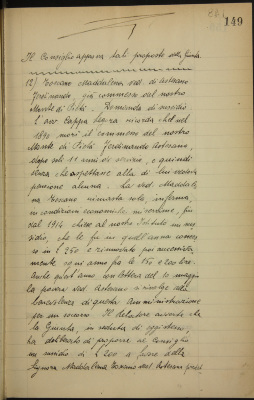 149
Il Consiglio approva tali proposte della Giunta.
12) Toscano Maddalena ved. di Astesano
Ferdinando, già commesso del nostro
Monte di Pietà - Domanda di sussidio
L'avv. Cappa Legora ricorda che nel
1890 morì il commesso del nostro
Monte di Pietà Ferdinando Astesano,
dopo soli 11 anni di servizio, e quindi
senza che aspettasse alla di lui vedova
pensione alcuna. La ved. Maddale-
na Toscano rimasta sola, inferma,
in condizioni economiche, fin
dal 1914 chiese al nostro Istituto un sus-
sidio, che le fu in quell'anno conces-
so in L 250 e rinnovato poi successiva-
mente ogni anno fra le 150 e 200 lire.
Anche quest'anno con lettera del 10 maggio
la povera ved. Astesano si rivolge alla
benevolenza di questa Amministrazione
per un soccorso. Il relatore avverte che
la Giunta, in seduta di oggi stesso,
ha deliberato di proporre al Consiglio
un sussidio di L 200 a favore della
Signora Maddalena Toscano ved. Astesano